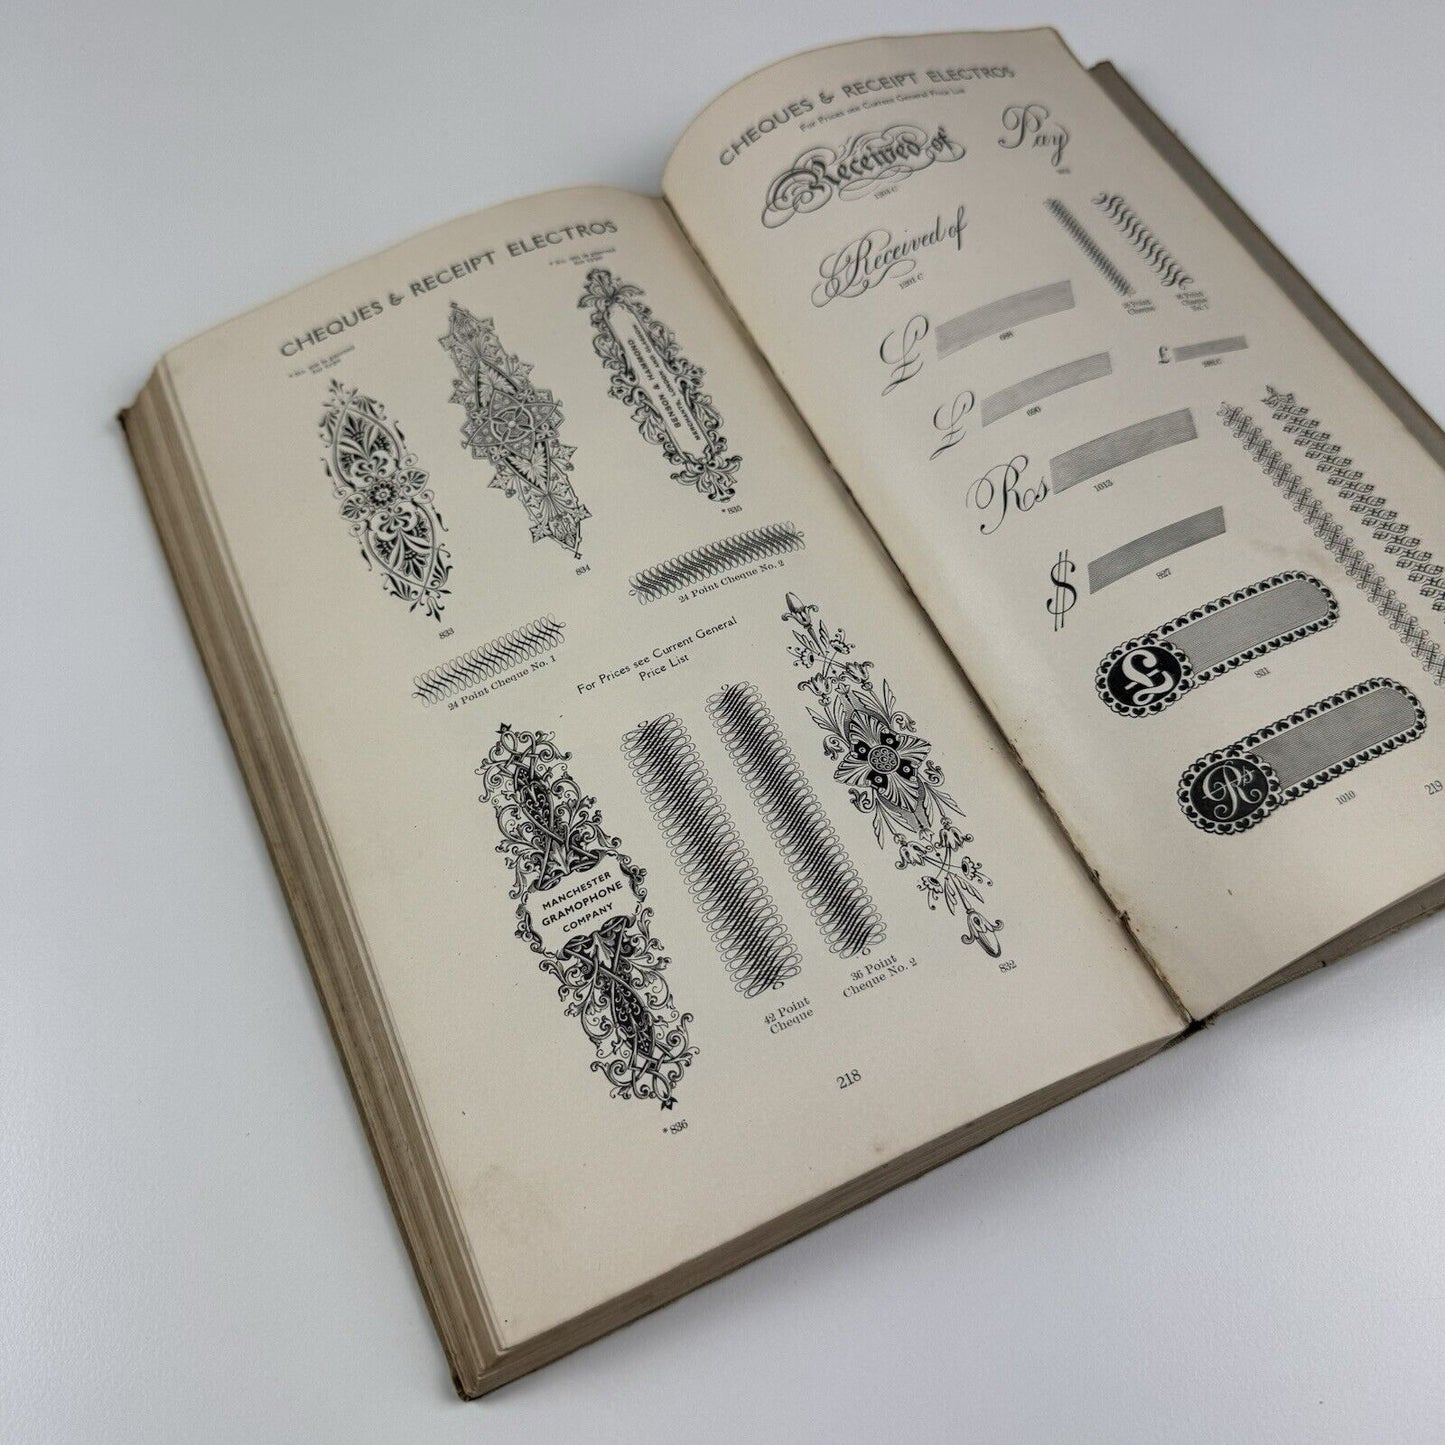 CHEQUES & RECEIPT ELECTROS
833
834
BENSON & HAMMOND
*835
24 Point Cheque No. 1
24 Point Cheque No. 2
For Prices see Current General
Price List
MANCHESTER
GRAMOPHONE
COMPANY
*836
42 Point
Cheque
36 Point
Cheque No. 2
832
218
CHEQUES & RECEIPT ELECTROS
For Prices see Current General Price List
Received of
Pay
Received of
1201 C
£
£
£
690
Rs
1013
$
827
£
831
Rs
1010
219